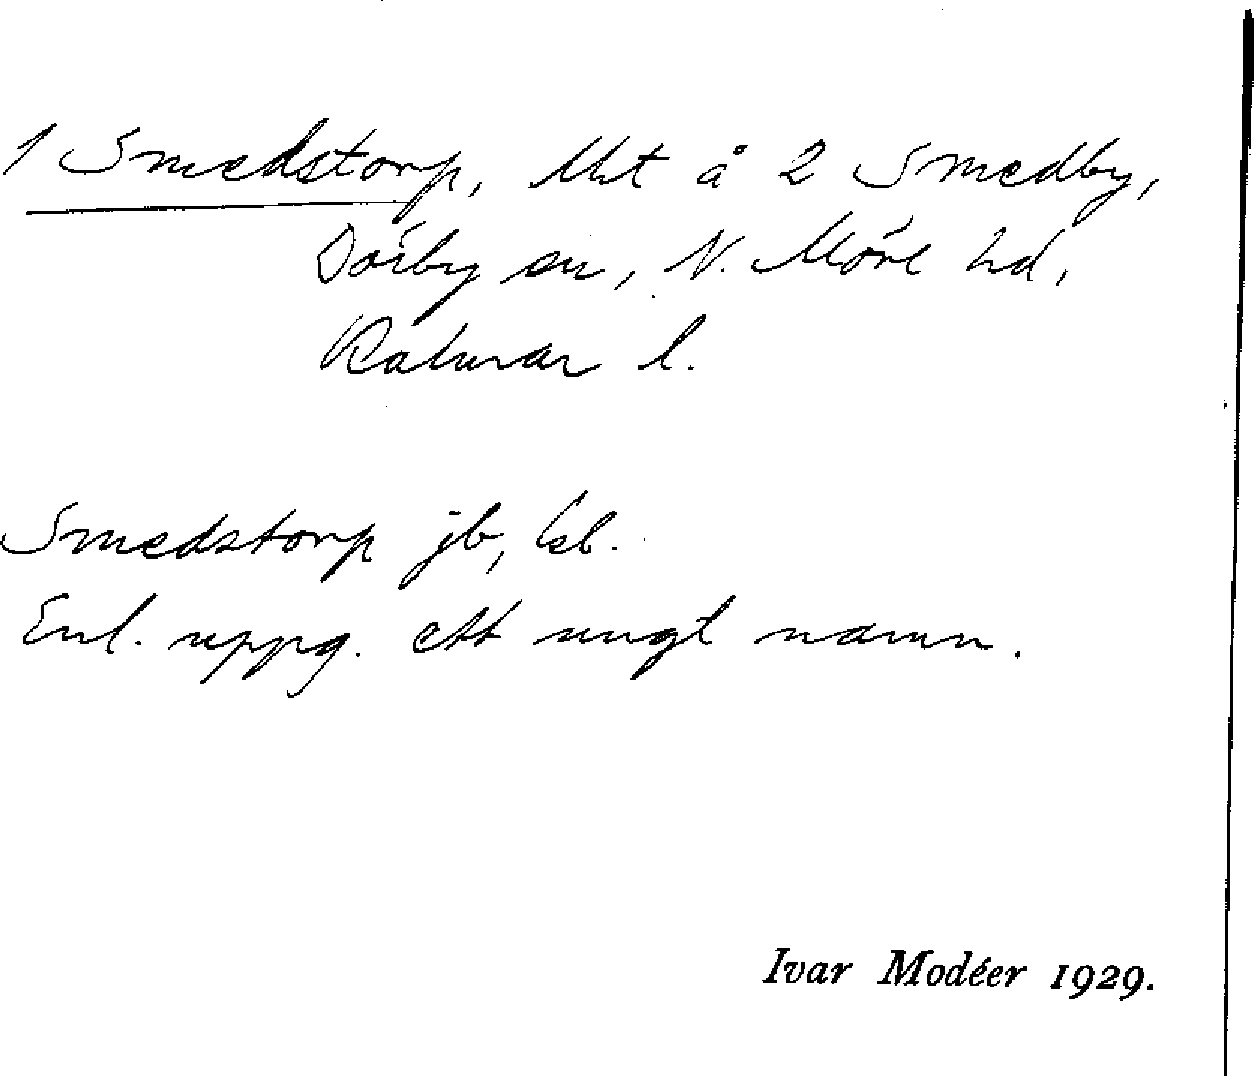 1 Smedstorp, lht å 2 Smedby,
Dörby sn, N. Möre hd,
Kalmar l.
Smedstorp jb, ksl.
Enl. uppg. ett ungt namn.
Ivar Modéer 1929.